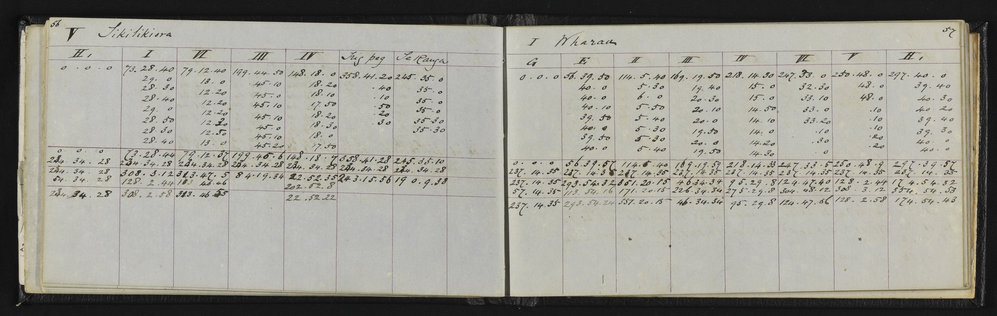 56
V Tikitikiora
II, I VI III IV Trig peg Te Ranga
0 . 0 . 0 73 . 28 . 40 79 . 12 . 40 199 . 44 . 50 148 . 18 . 0 358 . 41 . 20 245 . 35 . 0
29 . 0 13 . 0 45 . 10 18 . 20 . 40 35 . 0
28 . 30 12 . 20 45 . 0 18 . 10 . 10 35 . 0
28 . 40 12 . 20 45 . 10 17 . 50 . 50 35 . 0
29 . 0 12 . 20 45 . 10 18 . 20 . 20 35 . 0
28 . 50 45 . 0 18 . 30 . 30 35 . 30
28 . 30 12 . 50 45 . 10 18 . 0 35 . 30
28 . 40 13 . 0 45 . 20 17 . 50
0 0 0 73 . 28 . 44 79 . 12 . 37 199 . 45 . 6 148 . 18 . 7 358 . 41 . 28 245 . 35 . 10
234 . 34 . 28 234 . 34 . 28 234 . 34 . 28 234 . 34 . 28 234 . 34 . 28 234 . 34 . 28 234 . 34 . 28
234 . 34 . 28 308 . 3 . 12 313 . 47 . 5 84 . 19 . 34 22 . 52 . 35 243 . 15 . 56 190 . 9 . 38
54 . 34 . 28 128 . 2 . 44 202 . 52 . 8
234 . 34 . 28 308 . 2 . 58 313 . 46 . 56 22 . 52 . 22
57
I Wharau
G E II III IV V II,
0 . 0 . 0 56 . 39 . 50 114 . 5 . 40 169 . 19 . 50 218 . 14 . 30 247 . 33 . 0 250 . 48 . 0 297 . 40 . 0
40 . 0 5 . 30 19 . 40 15 . 0 32 . 30 48 . 0 39 . 40
40 . 0 6 . 0 20 . 30 15 . 0 33 . 10 48 . 0 40 . 30
40 . 10 5 . 50 20 . 10 14 . 50 33 . 0 . 10 40 . 20
39 . 50 5 . 40 20 . 0 14 . 10 33 . 20 . 10 39 . 30
40 . 0 5 . 30 19 . 50 14 . 0 . 10 . 10 39 . 30
39 . 50 5 . 30 20 . 0 14 . 20 . 30 . 20 40 . 0
40 . 0 5 . 40 19 . 50 14 . 30 0 40 . 0
19 . 50
0 . 0 . 0 56 . 39 . 57 114 . 5 . 40 169 . 19 . 59 218 . 14 . 33 247 . 33 . 5 250 . 48 . 9 297 . 39 . 57
237 . 14 . 35 237 . 14 . 35 237 . 14 . 35 237 . 14 . 35 237 . 14 . 35 237 . 14 . 35 237 . 14 . 35 237 . 14 . 35
237 . 14 . 35 293 . 54 . 32 351 . 20 . 15 46 . 34 . 34 95 . 29 . 8 124 . 47 . 40 128 . 2 . 44 174 . 54 . 32
57 . 14 . 35 171 . 20 . 15 226 . 34 . 34 275 . 29 . 8 304 . 48 . 12 308 . 3 . 12 354 . 54 . 53
237 . 14 . 35 293 . 54 . 24 351 . 20 . 15 46 . 34 . 34 95 . 29 . 8 124 . 47 . 56 128 . 2 . 58 174 . 54 . 43